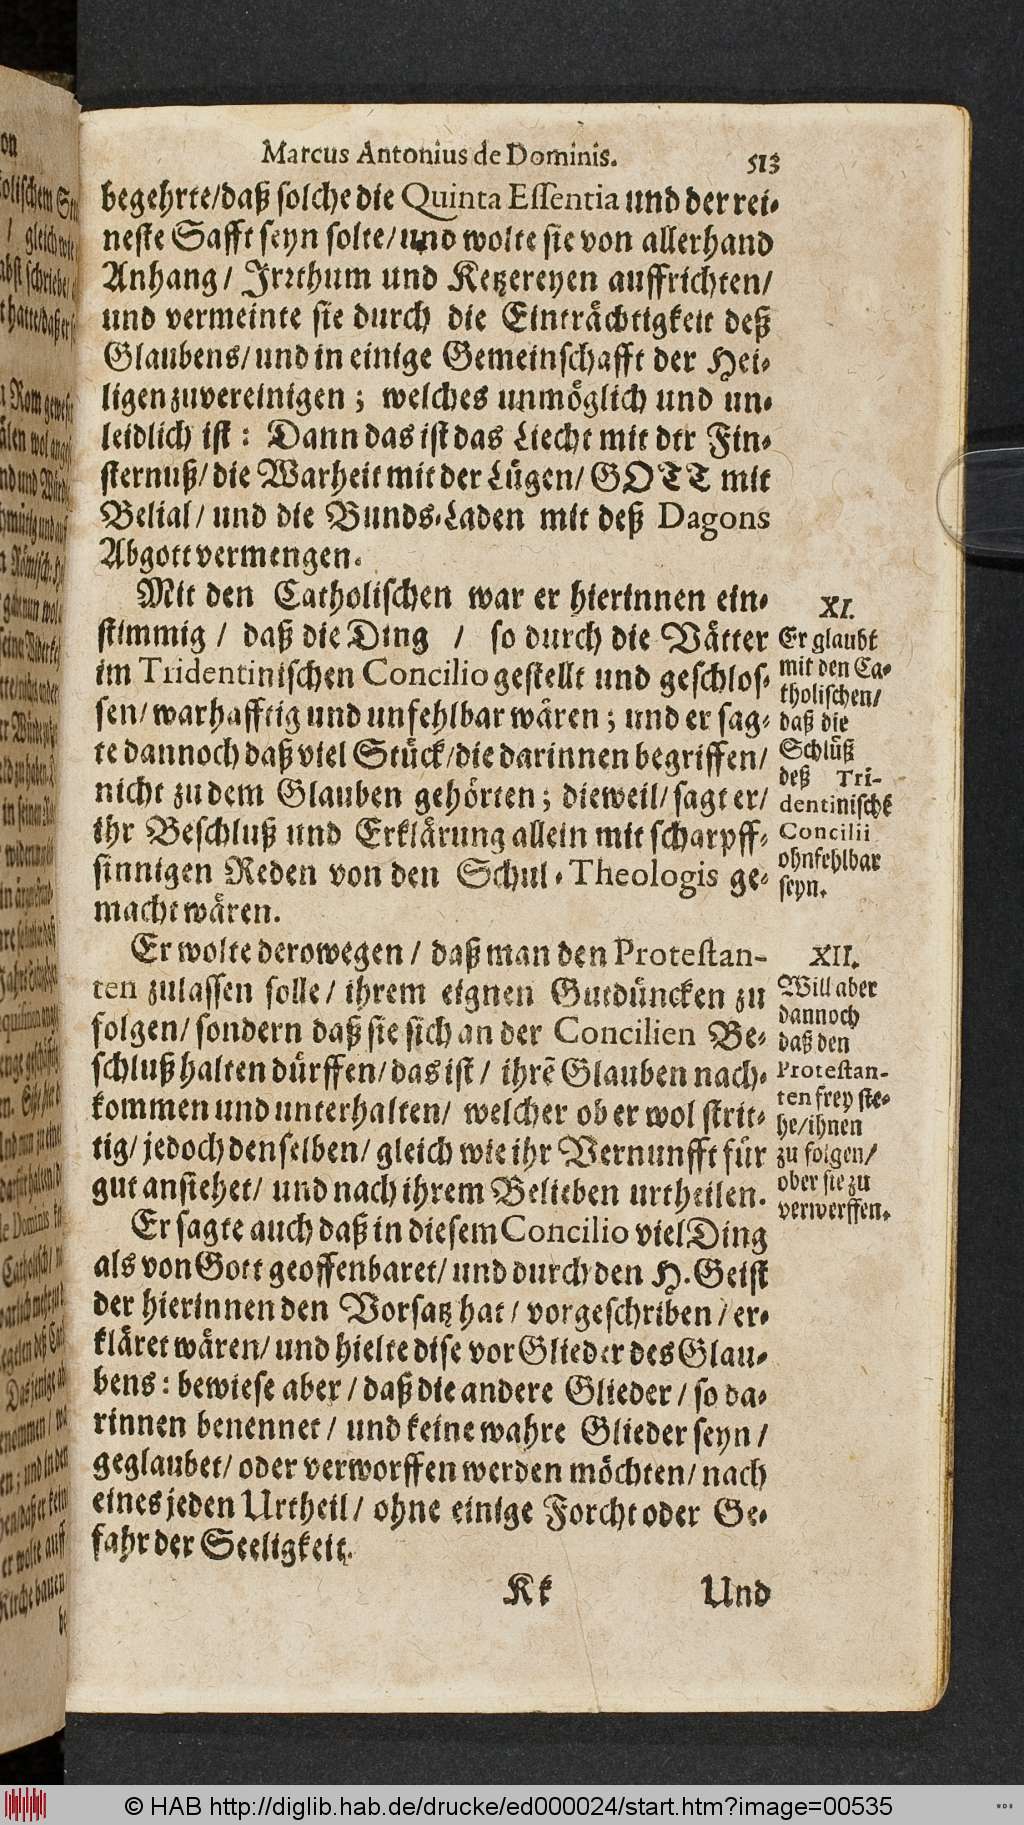 Marcus Antonius de Dominis. 513
begehrte/daß solche die Quinta Essentia und der rei-
neste Safft seyn solte/und wolte sie von allerhand
Anhang/ Irrthum und Ketzereyen auffrichten/
und vermeinte sie durch die Einträchtigkeit deß
Glaubens/und in einige Gemeinschafft der Hei-
ligen zuvereinigen; welches unmöglich und un-
leidlich ist: Dann das ist das Liecht mit der Fin-
sternuß/die Warheit mit der Lügen/GOTT mit
Belial/und die Bunds-Laden mit deß Dagons
Abgott vermengen.
Mit den Catholischen war er hierinnen ein-
stimmig / daß die Ding / so durch die Vätter
im Tridentinischen Concilio gestellt und geschlos-
sen/warhafftig und unfehlbar wären; und er sag-
te dannoch daß viel Stück/die darinnen begriffen/
nicht zu dem Glauben gehörten; dieweil/sagt er/
ihr Beschluß und Erklärung allein mit scharpff-
sinnigen Reden von den Schul-Theologis ge-
macht wären.
XI.
Er glaubt
mit den Ca-
tholischen/
daß die
Schlüß
deß Tri-
dentinische
Concilii
ohnfehlbar
seyn.
Er wolte derowegen / daß man den Protestan-
ten zulassen solle/ ihrem eignen Gutdüncken zu
folgen/sondern daß sie sich an der Concilien Be-
schluß halten dürffen/das ist/ ihrē Glauben nach-
kommen und unterhalten/ welcher ob er wol strit-
tig/jedoch denselben/gleich wie ihr Vernunfft für
gut ansiehet/ und nach ihrem Belieben urtheilen.
XII.
Will aber
dannoch
daß den
Protestan-
ten frey ste-
he/ihnen
zu folgen/
ober sie zu
verwerffen.
Er sagte auch daß in diesem Concilio viel Ding
als von Gott geoffenbaret/und durch den H. Geist
der hierinnen den Vorsatz hat/vorgeschriben/er-
kläret wären/und hielte dise vor Glieder des Glau-
bens: bewiese aber / daß die andere Glieder/so da-
rinnen benennet / und keine wahre Glieder seyn/
geglaubet/oder verworffen werden möchten/nach
eines jeden Urtheil/ ohne einige Forcht oder Ge-
fahr der Seeligkeit.
Kk Und
© HAB http://diglib.hab.de/drucke/ed000024/start.htm?image=00535